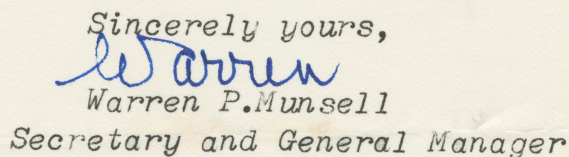 Sincerely yours,
Warren
Warren P.Munsell
Secretary and General Manager